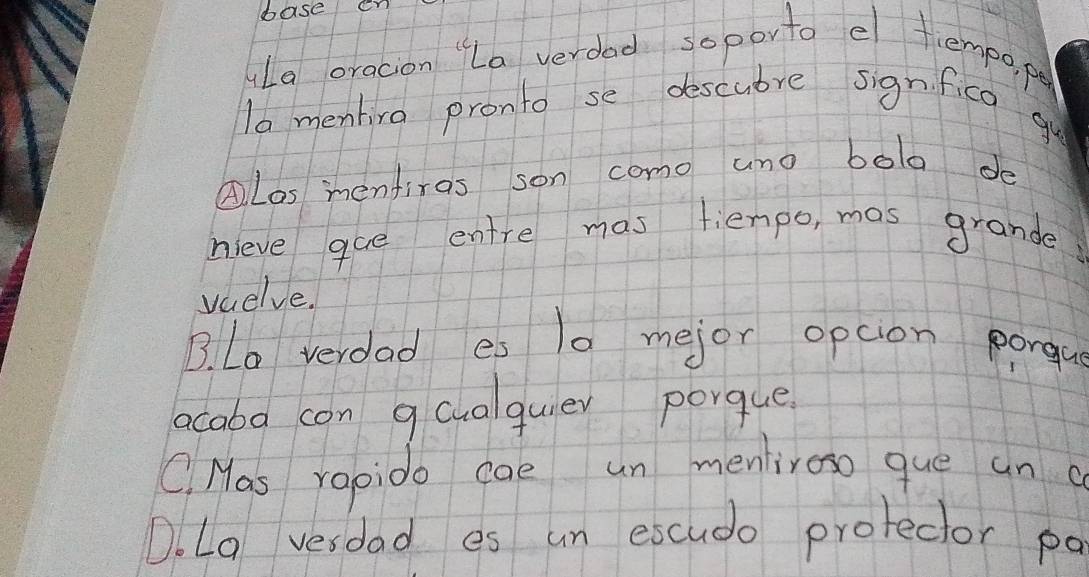 base en
4La oracion "La verdad soporta el tiempo, pe
la mentira pronto se descubre significa qu
A Las mentiras son como una bola de
nieve que entre mas tiempo, mas grande s
vuelve.
B. La verdad es la mejor opcion porque
acaba con q cualquier porque.
C. Mas rapido cae un mentiroso que un co
D. La verdad es un escudo protector pa